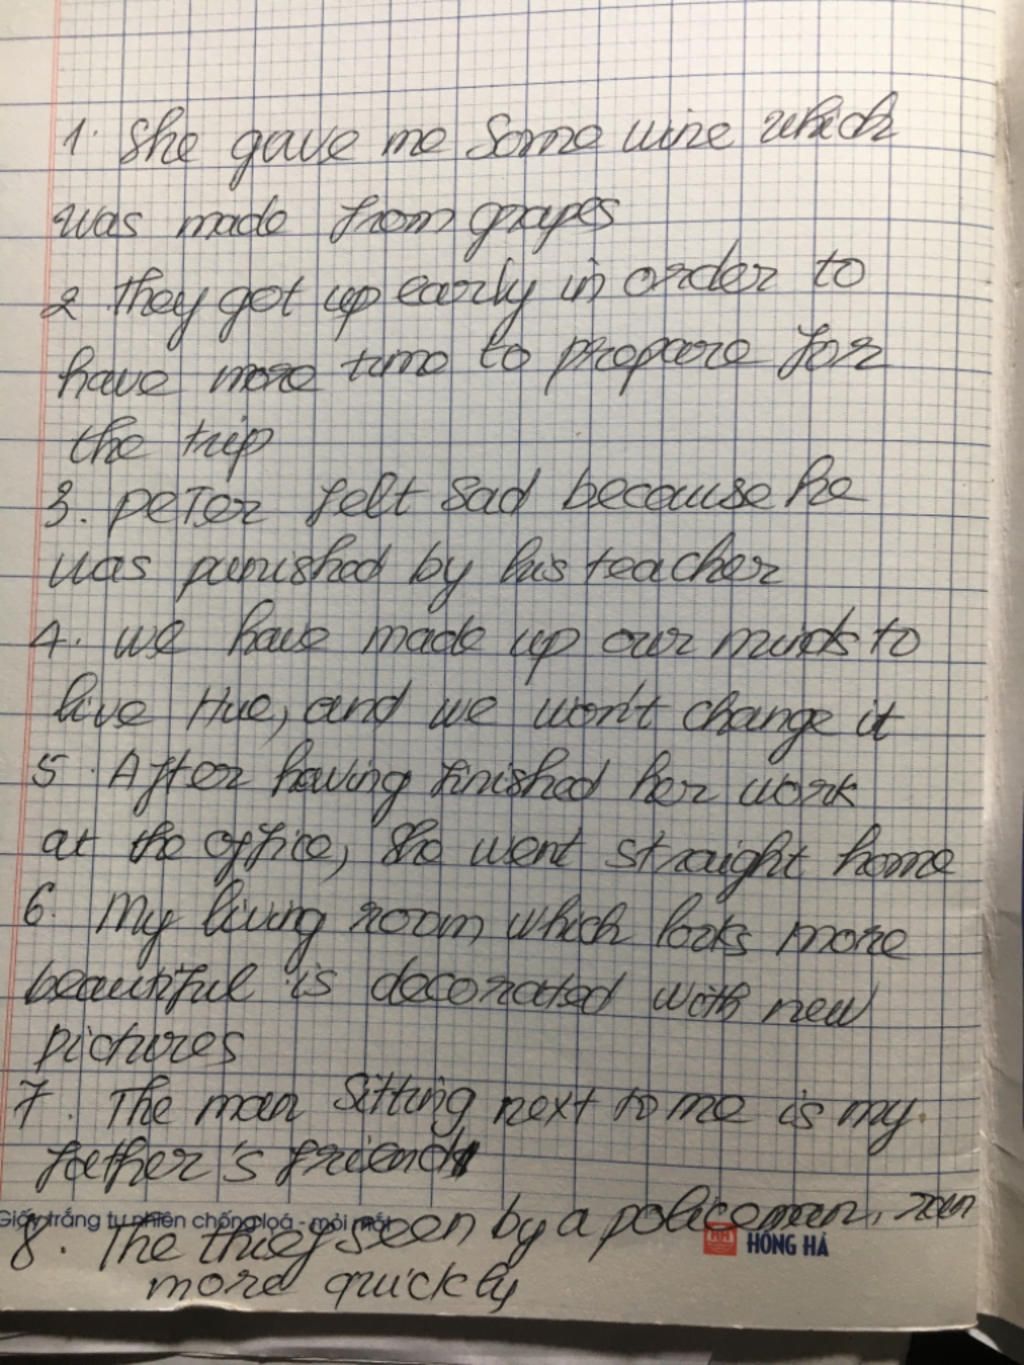 1. She gave me some wine which
was made from grapes
2 They got up early in order to
have more time to prepare for
the trip
3. PeTer felt sad because he
was punished by his teacher
4. we have made up our minds to
live Hue, and we won't change it
5. After having finished her work
at the office, she went straight home
6. My living room which looks more
beautiful is decorated with new
pictures
7. The man sitting next to me is my
father's friend
Giấy trắng tự nhiên chống loá - mỏi mắt
8. The thief seen by a policeman, ran
HH HỒNG HÀ
more quickly